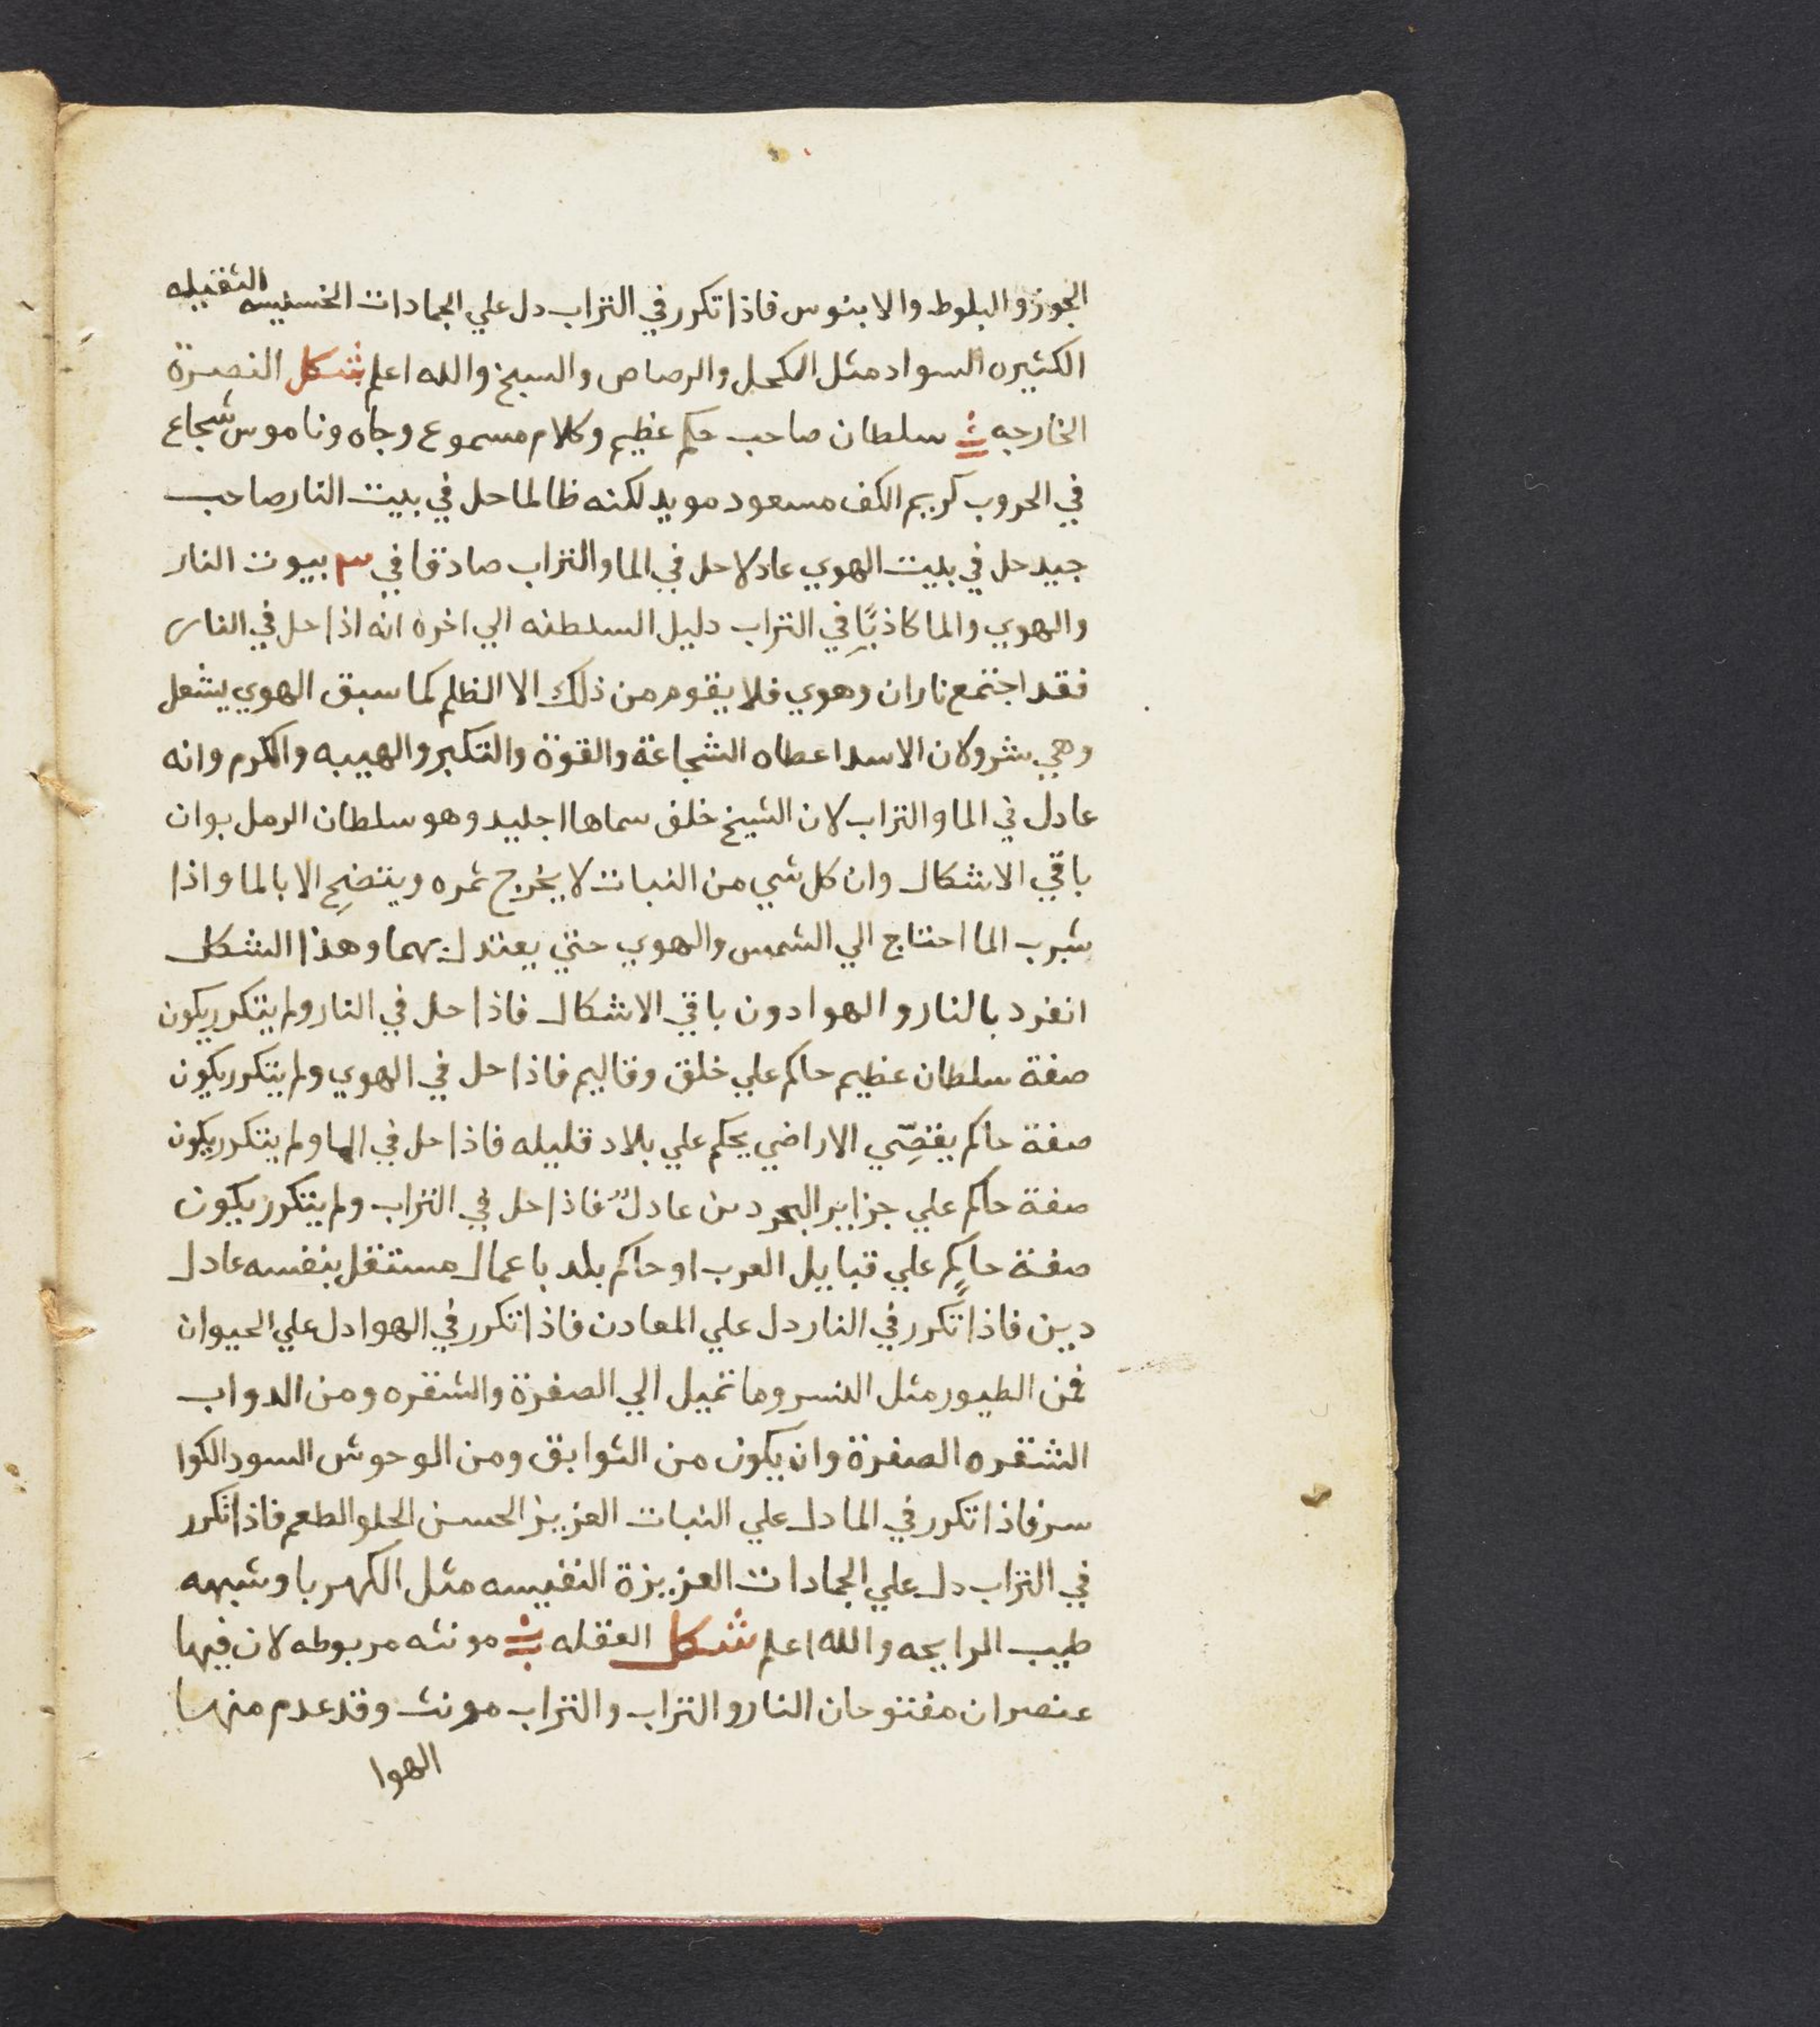 الجوز والبلوط والابنوس فاذا تكرر في التراب دل علي الجمادات الخسيسه الثقيله
الكثيره السواد مثل الكحل والرصاص والسبخ والله اعلم شكل النصرة
الخارجه سلطان صاحب حكم عظيم وكلام مسموع وجاه وناموس شجاع
في الحروب كريم الكف مسعود مويد لكنه ظالما حل في بيت النار صاحب
جيد حل في بيت الهوي عادلا حل في الما والتراب صادقا في ٣ بيوت النار
والهوي والما كاذبًا في التراب دليل السلطنه الي اخره انه اذا حل في النار
فقد اجتمع ناران وهوي فلا يقوم من ذلك الا الظلم كما سبق الهوي يشعل
وهي شر ولان الاسد اعطاه الشجاعة والقوة والتكبر والهيبه والكرم وانه
عادل في الما والتراب لان الشيخ خلف سماها اجليد وهو سلطان الرمل بوان
باقي الاشكال وان كل شي من النبات لا يخرج ثمره وينضج الا بالما واذا
شرب الما احتاج الي الشمس والهوي حتي يعتدل بهما وهذا الشكل
انفرد بالنار والهوا دون باقي الاشكال فاذا حل في النار ولم يتكرر يكون
صفة سلطان عظيم حاكم علي خلق وقاليم فاذا حل في الهوي ولم يتكرر يكون
صفة حاكم يقصّي الاراضي يحكم علي بلاد قليله فاذا حل في الما ولم يتكرر يكون
صفة حاكم علي جزاير البحر دين عادل فاذا حل في التراب ولم يتكرر يكون
صفة حاكم علي قبايل العرب او حاكم بلد باعمال مستقل بنفسه عادل
دين فاذا تكرر في النار دل علي المعادن فاذا تكرر في الهوا دل علي الحيوان
فمن الطيور مثل النسر وما تميل الي الصفرة والشقره ومن الدواب
الشقره الصفرة وان يكون من الثوابق ومن الوحوش السود الكوا
سر فاذا تكرر في الما دل علي النبات العزيز الحسن الحلو الطعم فاذا تكرر
في التراب دل علي الجمادات العزيزة النفيسه مثل الكهربا وشبهه
طيب الرايحه والله اعلم شكل العقله مونثه مربوطه لان فيها
عنصران مفتوحان النار والتراب والتراب مونث وقد عدم منها
الهوا